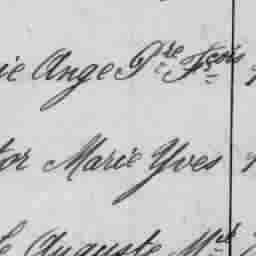 ie Ange Pre Fçois
tor Marie Yves
e Auguste Mel